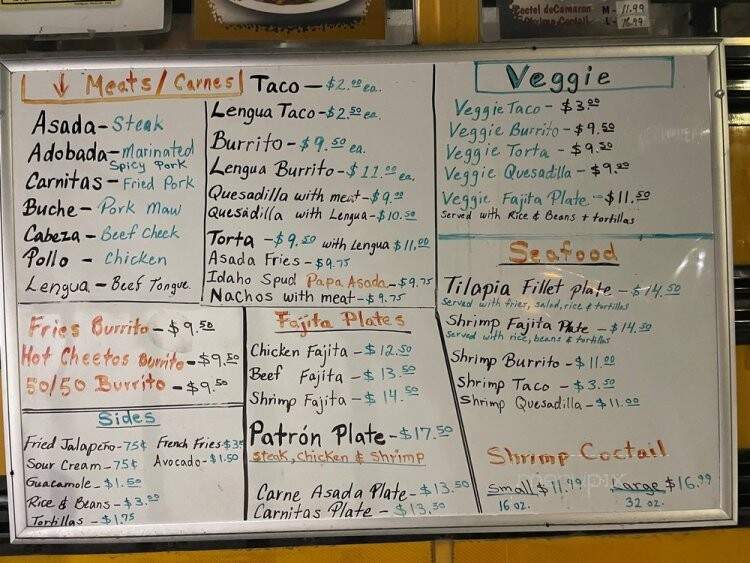 Coctel deCamaron M - 11.99
Shrimp Coctail L - 16.99
↓ Meats/Carnes
Asada - Steak
Adobada - Marinated
Spicy Pork
Carnitas - Fried Pork
Buche - Pork Maw
Cabeza - Beef Cheek
Pollo - Chicken
Lengua - Beef Tongue
Taco - $2.00 ea.
Lengua Taco - $2.50 ea.
Burrito - $9.50 ea.
Lengua Burrito - $11.00 ea.
Quesadilla with meat - $9.00
Quesadilla with Lengua - $10.50
Torta - $9.50 with Lengua $11.00
Asada Fries - $9.75
Idaho Spud Papa Asada - $9.75
Nachos with meat - $9.75
Veggie
Veggie Taco - $3.00
Veggie Burrito - $9.50
Veggie Torta - $9.50
Veggie Quesadilla - $9.00
Veggie Fajita Plate - $11.50
Served with Rice & Beans + tortillas
Seafood
Tilapia Fillet plate - $14.50
Served with fries, salad, rice & tortillas
Shrimp Fajita Plate - $14.50
Served with rice, beans & tortillas
Shrimp Burrito - $11.00
Shrimp Taco - $3.50
Shrimp Quesadilla - $11.00
Shrimp Coctail
Small $11.99 Large $16.99
16 oz. 32 oz.
Fries Burrito - $9.50
Hot Cheetos Burrito - $9.50
50/50 Burrito - $9.50
Sides
Fried Jalapeño - 75¢ French Fries $3.50
Sour Cream - 75¢ Avocado - $1.50
Guacamole - $1.50
Rice & Beans - $3.00
Tortillas - $1.75
Fajita Plates
Chicken Fajita - $12.50
Beef Fajita - $13.50
Shrimp Fajita - $14.50
Patrón Plate - $17.50
Steak, Chicken & Shrimp
Carne Asada Plate - $13.50
Carnitas Plate - $13.50